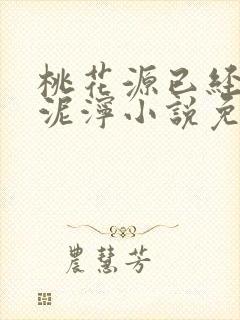 桃花源已経
泥濘小說免
農慧芳